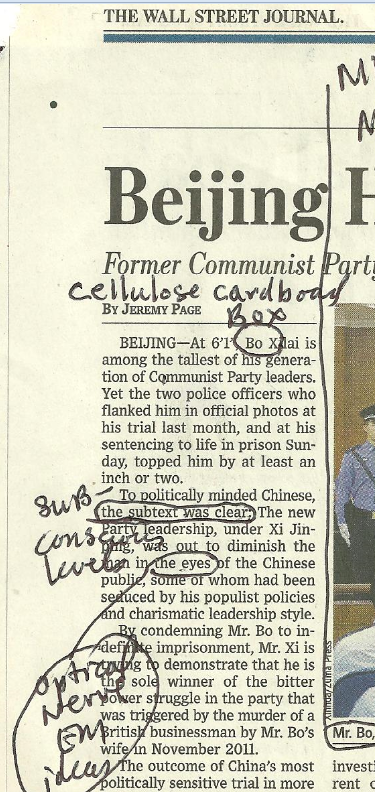 THE WALL STREET JOURNAL.
M
M
Beijing H
Former Communist Party
cellulose cardboard
Box
BY JEREMY PAGE
BEIJING—At 6'1" Bo Xilai is
among the tallest of his genera-
tion of Communist Party leaders.
Yet the two police officers who
flanked him in official photos at
his trial last month, and at his
sentencing to life in prison Sun-
day, topped him by at least an
inch or two.
To politically minded Chinese,
the subtext was clear: The new
Party leadership, under Xi Jin-
ping, was out to diminish the
man in the eyes of the Chinese
public, some of whom had been
seduced by his populist policies
and charismatic leadership style.
By condemning Mr. Bo to in-
definite imprisonment, Mr. Xi is
trying to demonstrate that he is
the sole winner of the bitter
power struggle in the party that
was triggered by the murder of a
British businessman by Mr. Bo's
wife in November 2011.
The outcome of China's most
politically sensitive trial in more
SUB-
conscious
levels
optical
Nerve
EM
ideas
Xinhua/Zuma Press
Mr. Bo,
investi
rent o